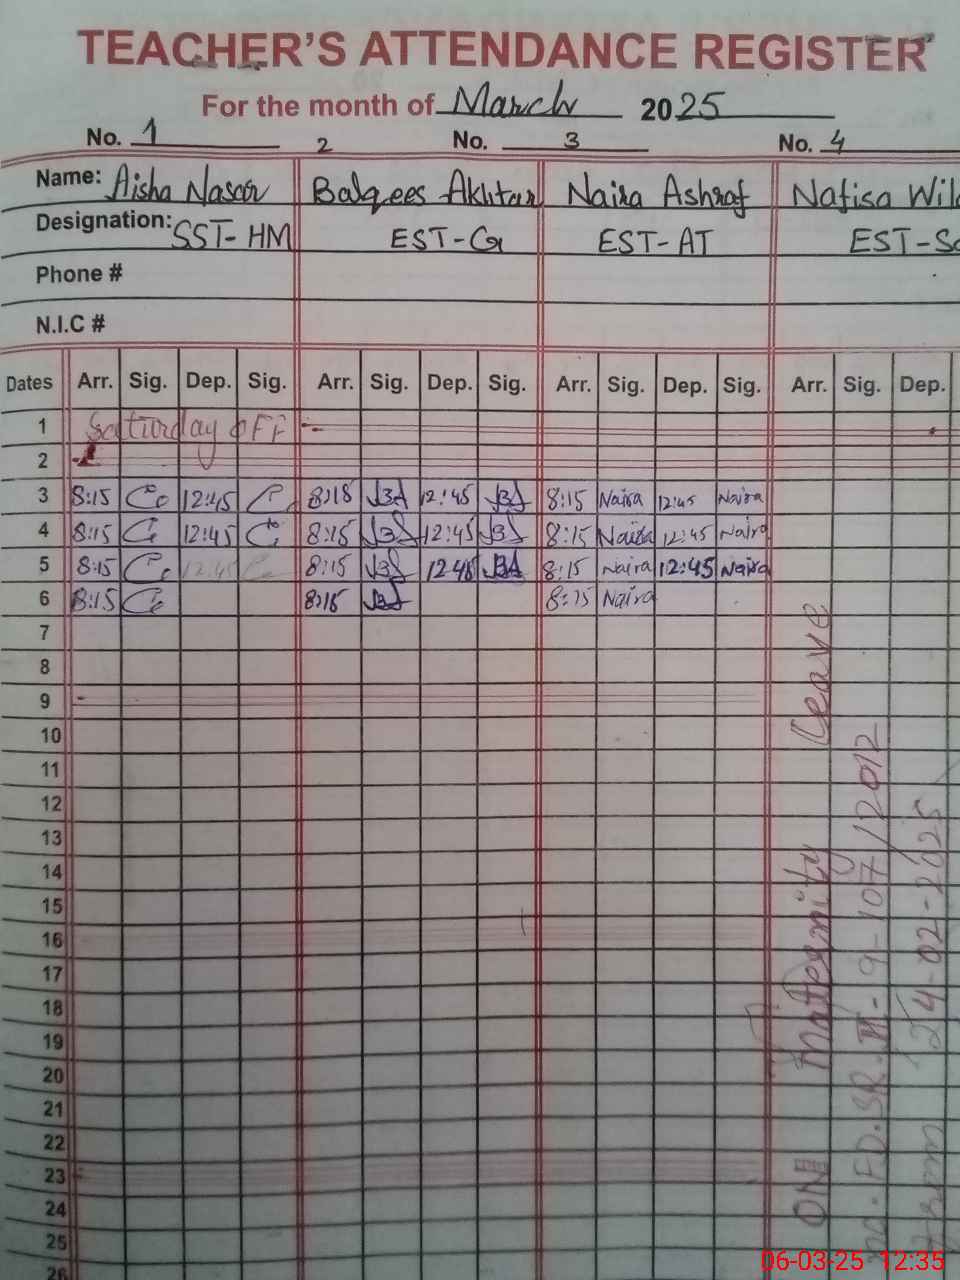 TEACHER'S ATTENDANCE REGISTER
For the month of March 2025
No. 1 2 No. 3 No. 4
Name: Aisha Naseer Balqees Akhtar Naira Ashraf Nafisa
Designation: SST-HM EST-G EST-AT
Phone #
N.I.C #
Dates Arr. Sig. Dep. Sig. Arr. Sig. Dep. Sig. Arr. Sig. Dep. Sig. Arr. Sig. Dep.
1 Saturday OFF
2
3 8:15 12:45 8:15 12:45 8:15 Naira 12:45 Naira
4 8:15 12:45 8:15 12:45 8:15 Naira 12:45 Naira
5 8:15 12:45 8:15 12:45 8:15 Naira 12:45 Naira
6 8:15 8:15 8:15 Naira
7
8
9
10
11
12
13
14
15
16
17
18
19
20
21
22
23
24
25
26
ON Maternity Leave
No. FD.SR.II-9-107/2012
From 24-02-2025
06-03-25 12:35